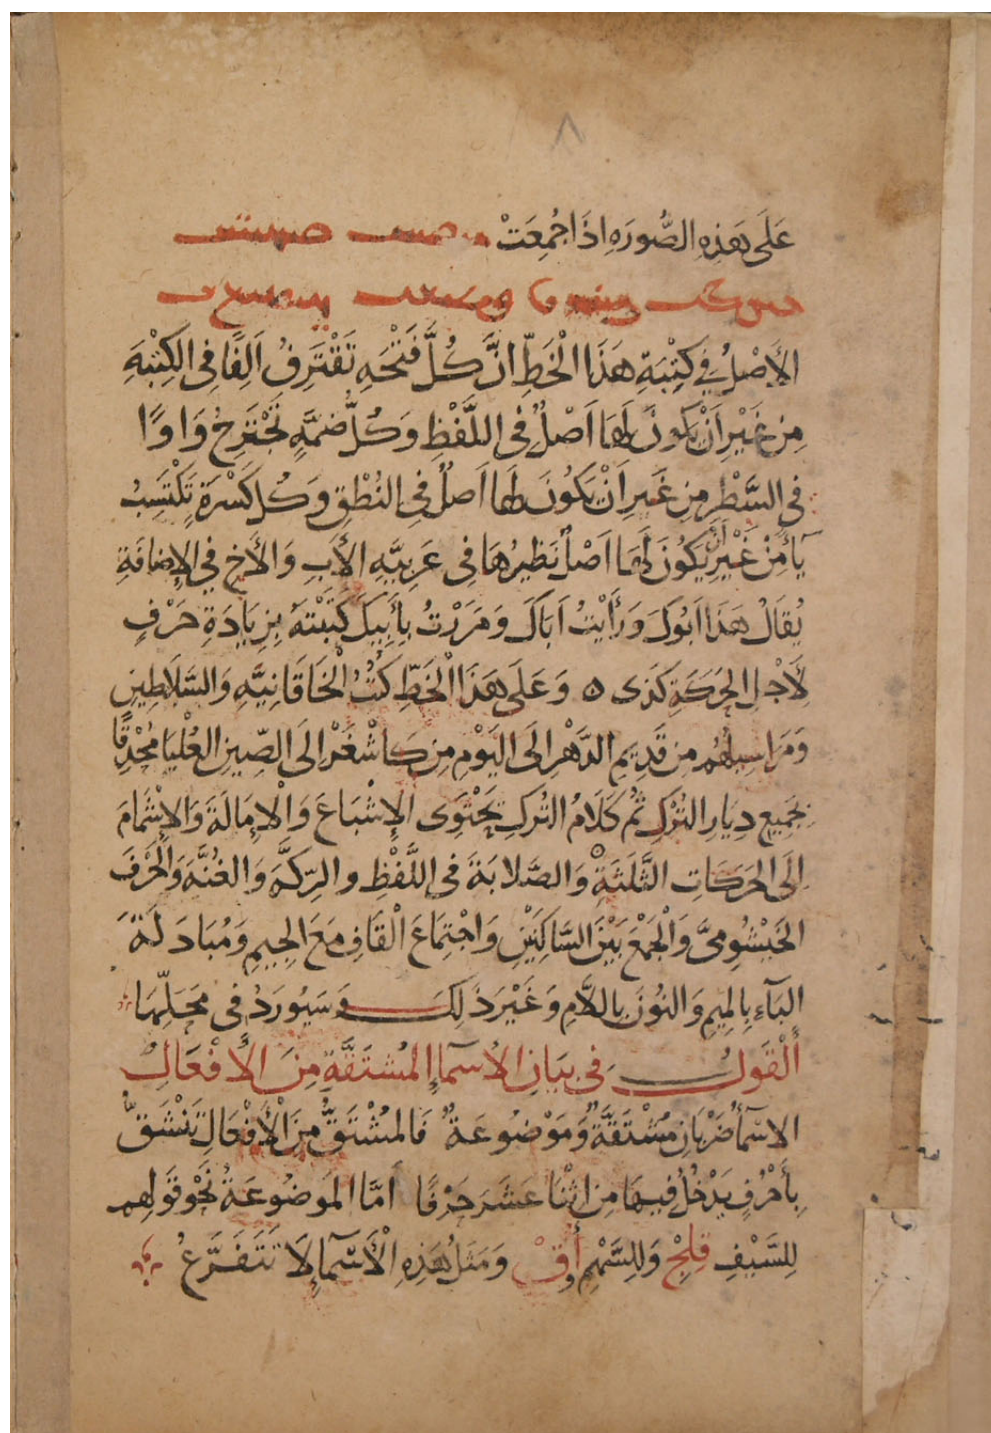 ٨
عَلَى هَذِهِ الصُّورَهِ اذَا جُمِعَتْ
الأَصْلُ فِي كِتْبَةِ هَذَا الْخَطِّ انَّ كُلَّ فَتْحَهٍ تَقْتَرِفُ اَلِفًا فِى الكِتْبَةِ
مِن غَيْرِ اَنْ يَكُونَ لَهَا اَصْلٌ فِى اللَّفْظِ وَكُلُّ ضَمَّةٍ تَخْتَرِجُ وَاوًا
فِى السَّطْرِ مِن غَيرِ اَنْ يَكُونَ لَهَا اَصلٌ فِى النُطْقِ وَكُل كَسْرَةٍ تَكْتَسِبُ
يآءً مِنْ غَيْرِ أَنْ يَكُونَ لَهَا اَصْلٌ نَظِيرُهَا فِى عَرَبِيَّهِ الأَبِ وَالأَخِ فِي الإِضافَةِ
يُقَالُ هَذَا اَبُوكَ وَرَأَيْتُ اَبَاكَ وَمَرَرْتُ بِأَبِيكَ كَتَبْتَهُ بِزِيَادَةِ حَرْفٍ
لِأَجْلِ الحَرَكَةِ كَذَى ٥ وَعَلَى هَذَا الْخَطِّ كُتُبُ الْخَاقَانِيَّهِ وَالسَّلَاطِينِ
وَمَرَاسِيلُهُم مِن قَدِيمِ الدَّهْرِ الَى اليَوْمِ مِن كَاشْغَرْ الَى الصِّينِ العُلْيَا مُحْدِقًا
بِجَمِيعِ دِيَارِ التُرْكِ ثُمَّ كَلَامُ التُركِ يَحْتَوِى الإِشْبَاعَ وَالْإِمَالَةَ وَالإِشْمَامَ
اِلَى الحَرَكَاتِ الثَّلَثَةِ وَالصَّلَابَةَ فِى اللَّفْظِ والرِّكَّةَ وَالغُنَّهَ وَالْحَرْفَ
الخَيْشُومِىَّ وَالْجَمْعَ بَيْنَ السَّاكِنَيْنِ وَاجْتِمَاعَ الْقَافِ مَعَ الجِيمِ وَمُبَادَلَةَ
البَآءِ بِالمِيمِ وَالنُونَ بِاللَّامِ وَغَيْرَ ذَلِكَ وَسَيُورَدُ فِى مَحَلِّهَا
أَلْقَولُ فِى بَيَانِ الأَسمَآءِ المُشتَقَّةِ مِنَ الأَفْعَالِ
الاسمآءُ ضَرْبَانِ مُشْتَقَّةٌ وَمَوْضُوعَةٌ فَالمُشْتَقُّ مِنَ الْأَفْعَالِ تَنْشَقُّ
بِأَحْرُفٍ يَدْخُلُ فِيهَا مِن اثْنَا عَشَرَ حَرْفًا أَمَّا المَوضُوعَةُ نَحْوَ قَولِهِم
لِلسَّيْفِ قِلِجْ وَلِلسَّهْمِ أُوقْ وَمَثَلُ هَذِهِ الْأَسمآءِ لَا تَتَفَرَّعُ